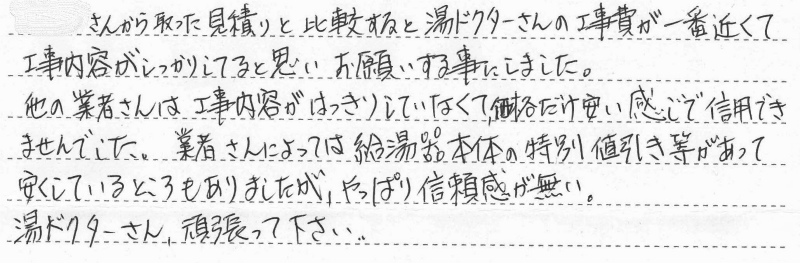 さんから取った見積りと比較すると湯ドクターさんの工事費が一番近くて
工事内容がしっかりしてると思いお願いする事にしました。
他の業者さんは工事内容がはっきりしていなくて、価格だけ安い感じで信用でき
ませんでした。業者さんによっては給湯器本体の特別値引き等があって
安くしているところもありましたが、やっぱり信頼感が無い。
湯ドクターさん、頑張って下さい。